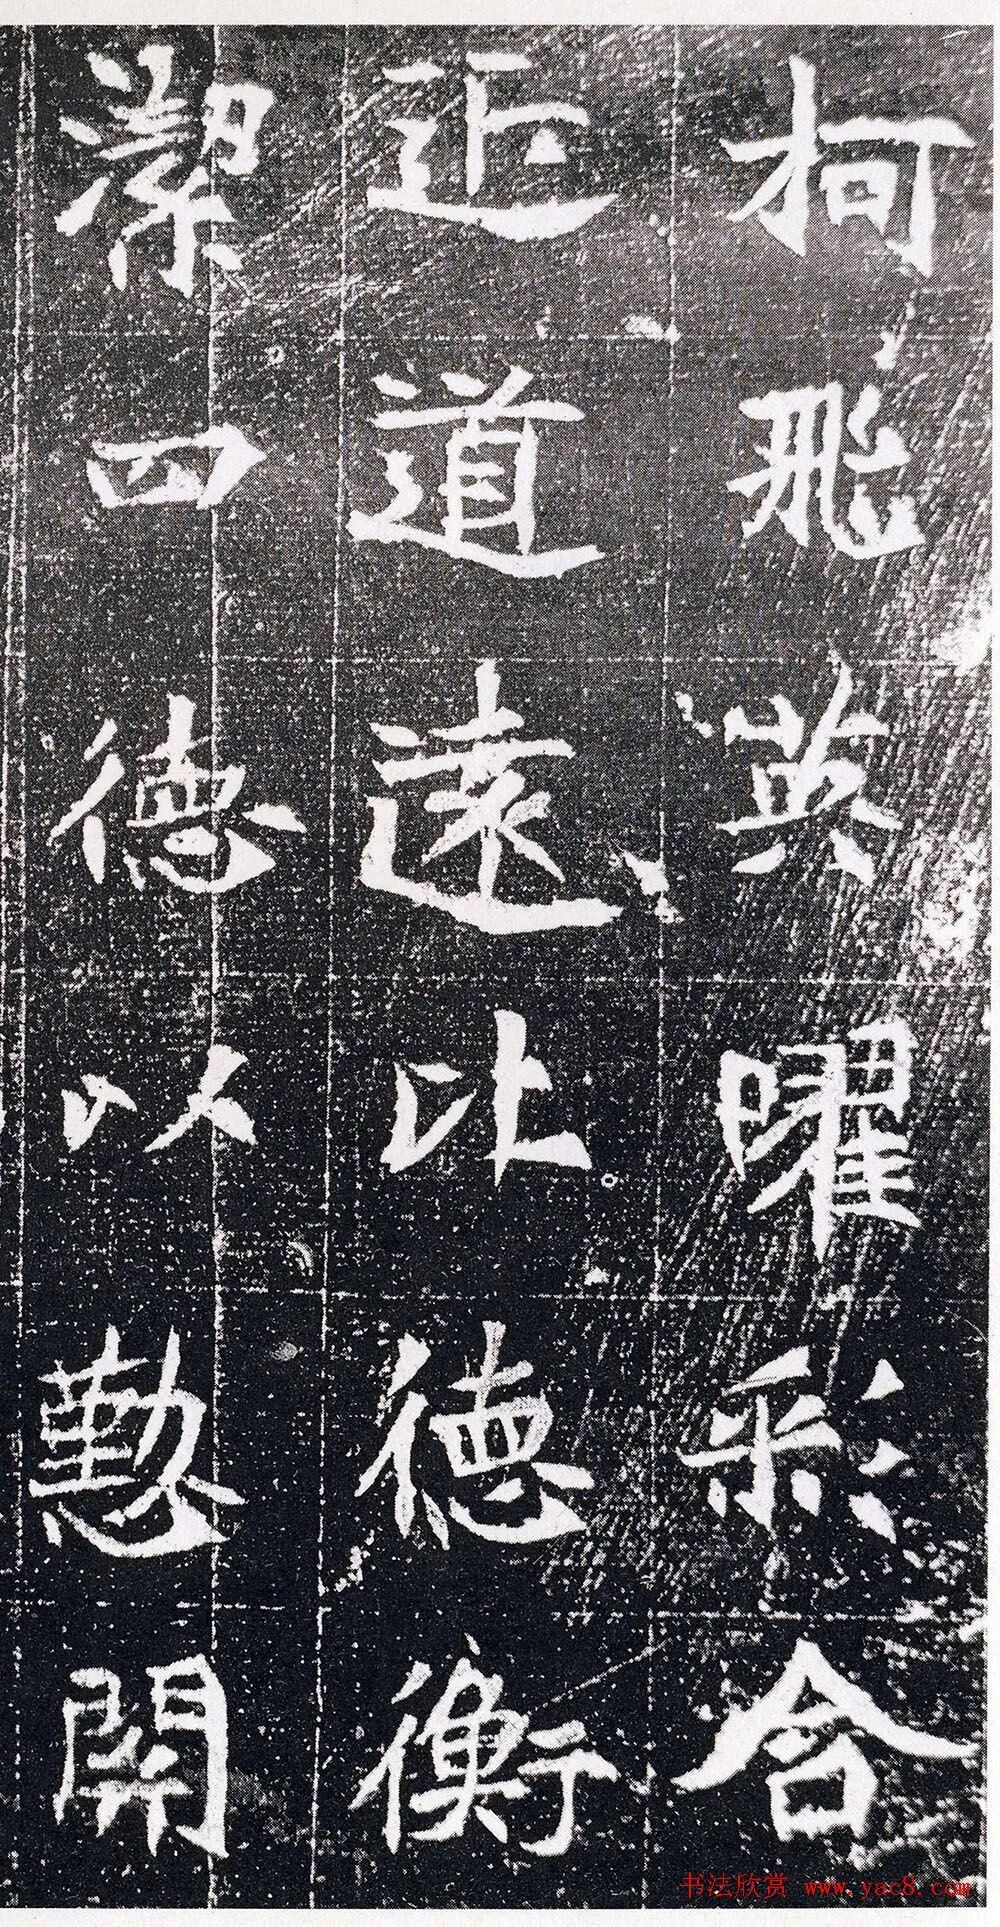 柯飛英曜彩含
近道遠比德衡
潔四德以懃開
书法欣赏 www.yac8.com